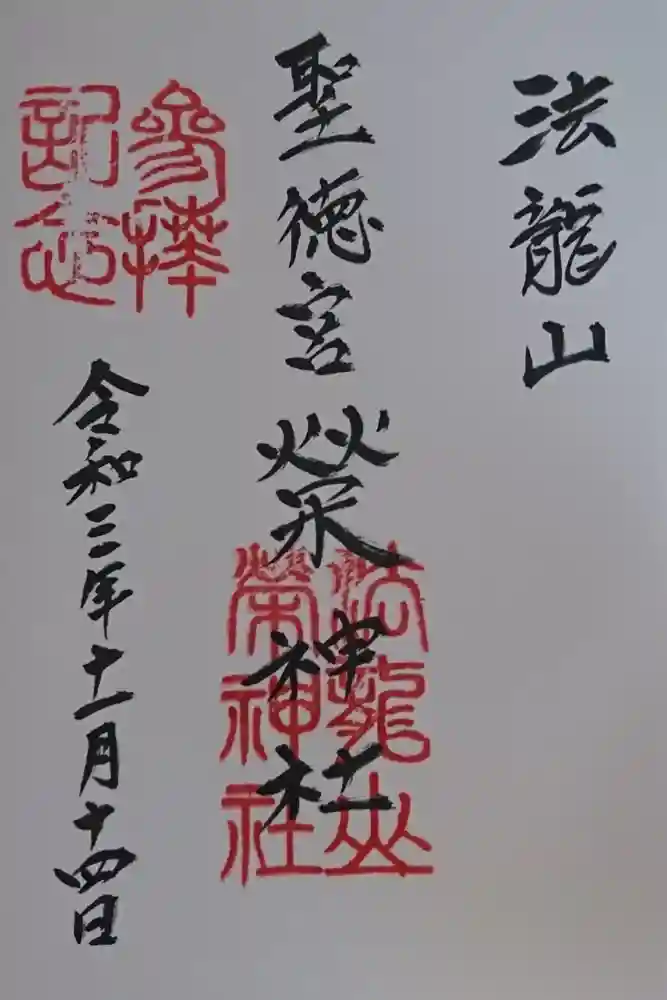 法龍山
聖徳宮
榮神社
法龍山
榮神社
参拝
記念
令和三年十一月十四日